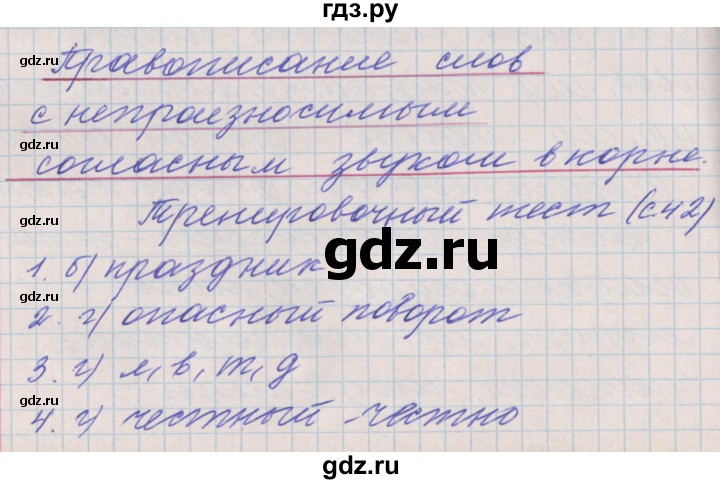 гдз.ру
gdz.ru gdz.ru
Правописание слов
с непроизносимым
gdz.ru gdz.ru
согласным звуком в корне.
Тренировочный тест (с.42)
gdz.ru
1. б) праздник
gdz.ru gdz.ru
2. г) опасный поворот
3. г) л, в, т, д
gdz.ru gdz.ru
4. г) честный - честно
gdz.ru